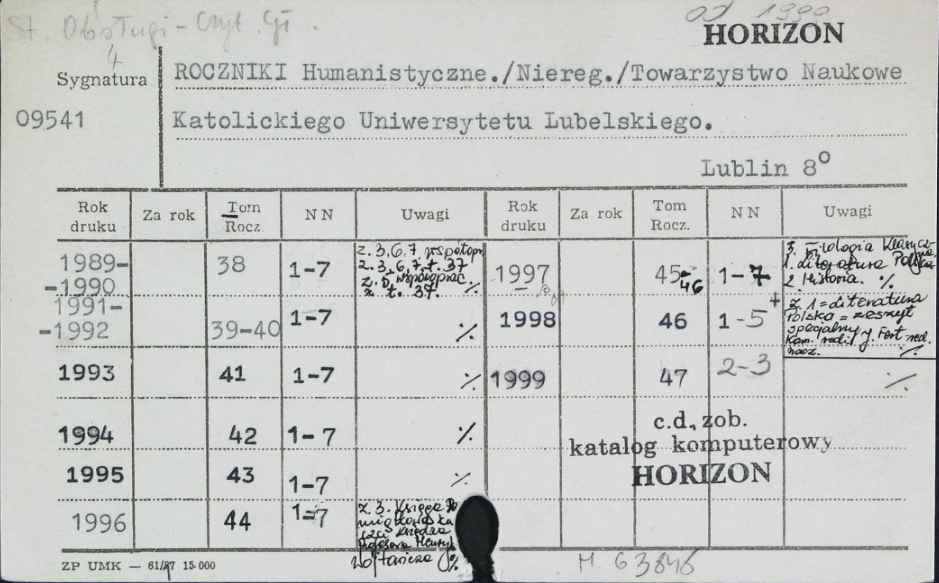 St. Obsługi - Czyt. Gł.
od 1990
HORIZON
4
Sygnatura
ROCZNIKI Humanistyczne./Niereg./Towarzystwo Naukowe
09541
Katolickiego Uniwersytetu Lubelskiego.
Lublin 8°
Rok druku Za rok Tom Rocz NN Uwagi Rok druku Za rok Tom Rocz. NN Uwagi
1989-
-1990 38 1-7 z. 3, 6, 7 współopr.
z. 3, 6, 7, t. 37
z. t. 37. %
1997 45-46 1-7 3. Filologia Klasycz-
1. Literatura Polska
2. Historia. %
1991-
-1992 39-40 1-7 %
1998 46 1-5 + z. 1 = Literatura
Polska = zeszyt
specjalny
%
1993 41 1-7 % 1999 47 2-3 %
1994 42 1-7 %
c.d. zob.
katalog komputerowy
HORIZON
1995 43 1-7 %
1996 44 1-7 z. 3. Księga
%
ZP UMK — 61/87 15.000
M. 63848